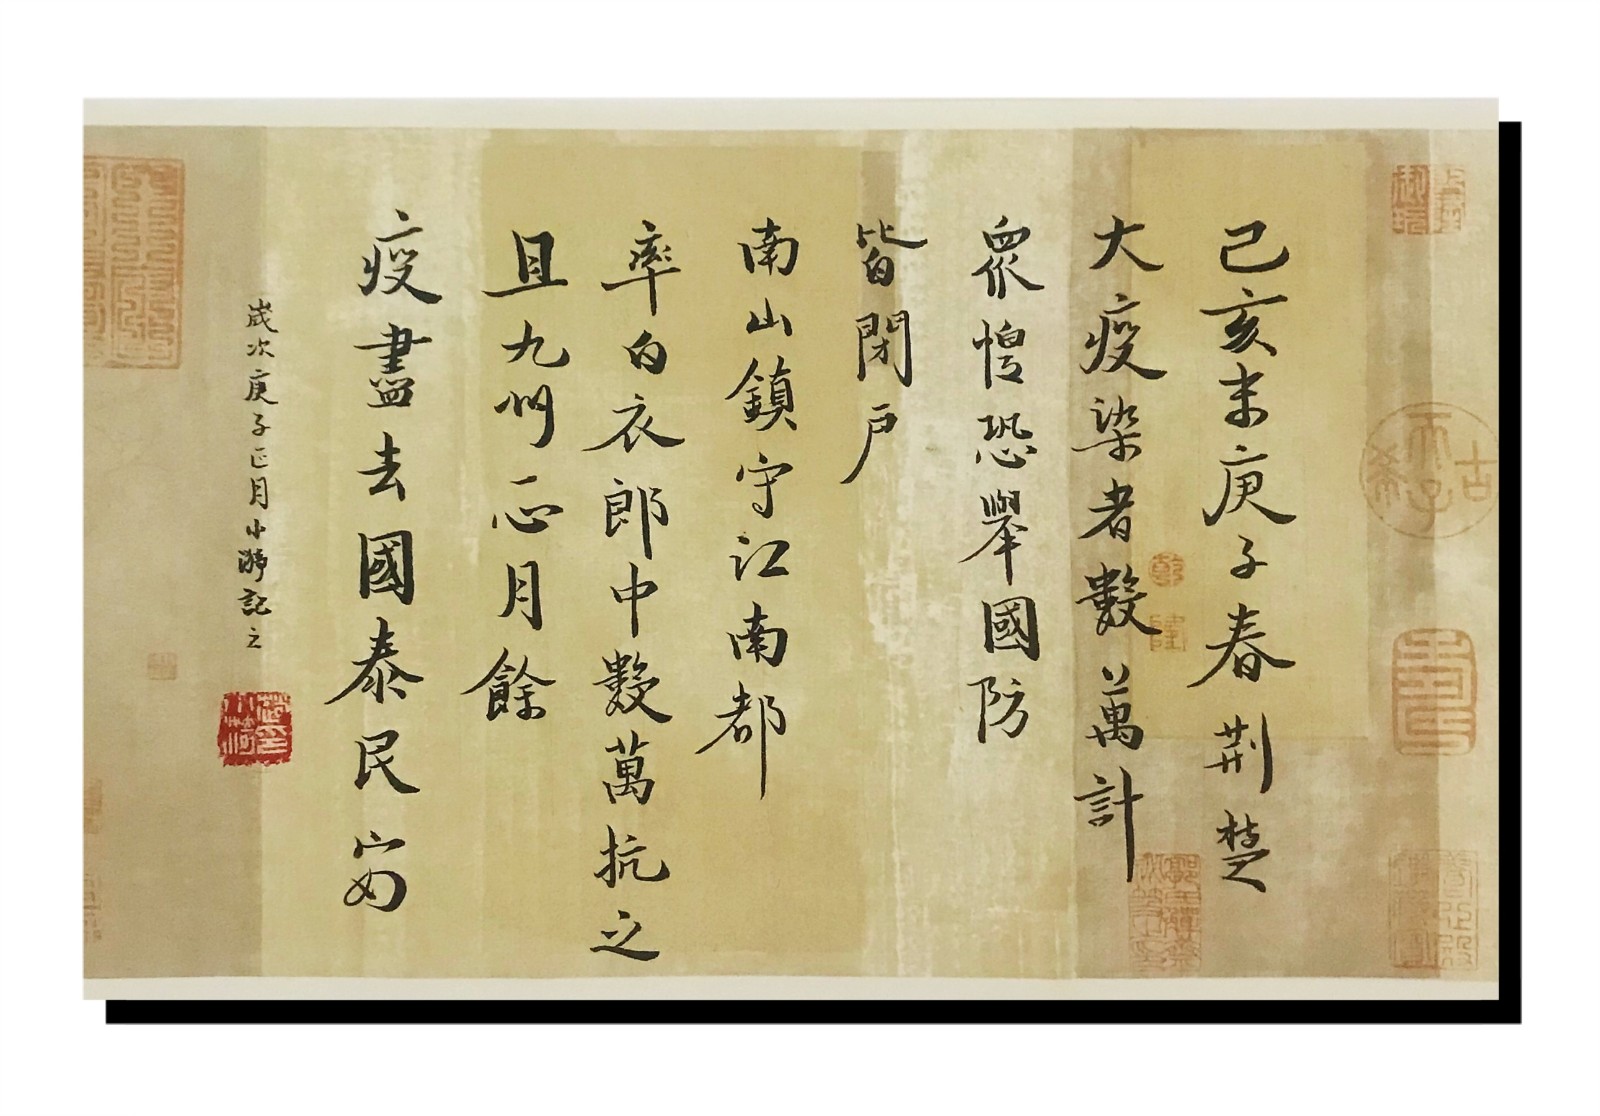 己亥末庚子春荆楚
大疫染者數萬計
眾惶恐舉國防
皆閉戶
南山鎮守江南都
率白衣郎中數萬抗之
且九州正月餘
疫盡去國泰民安
歲次庚子正月小㴻記之
古希天子
乾隆